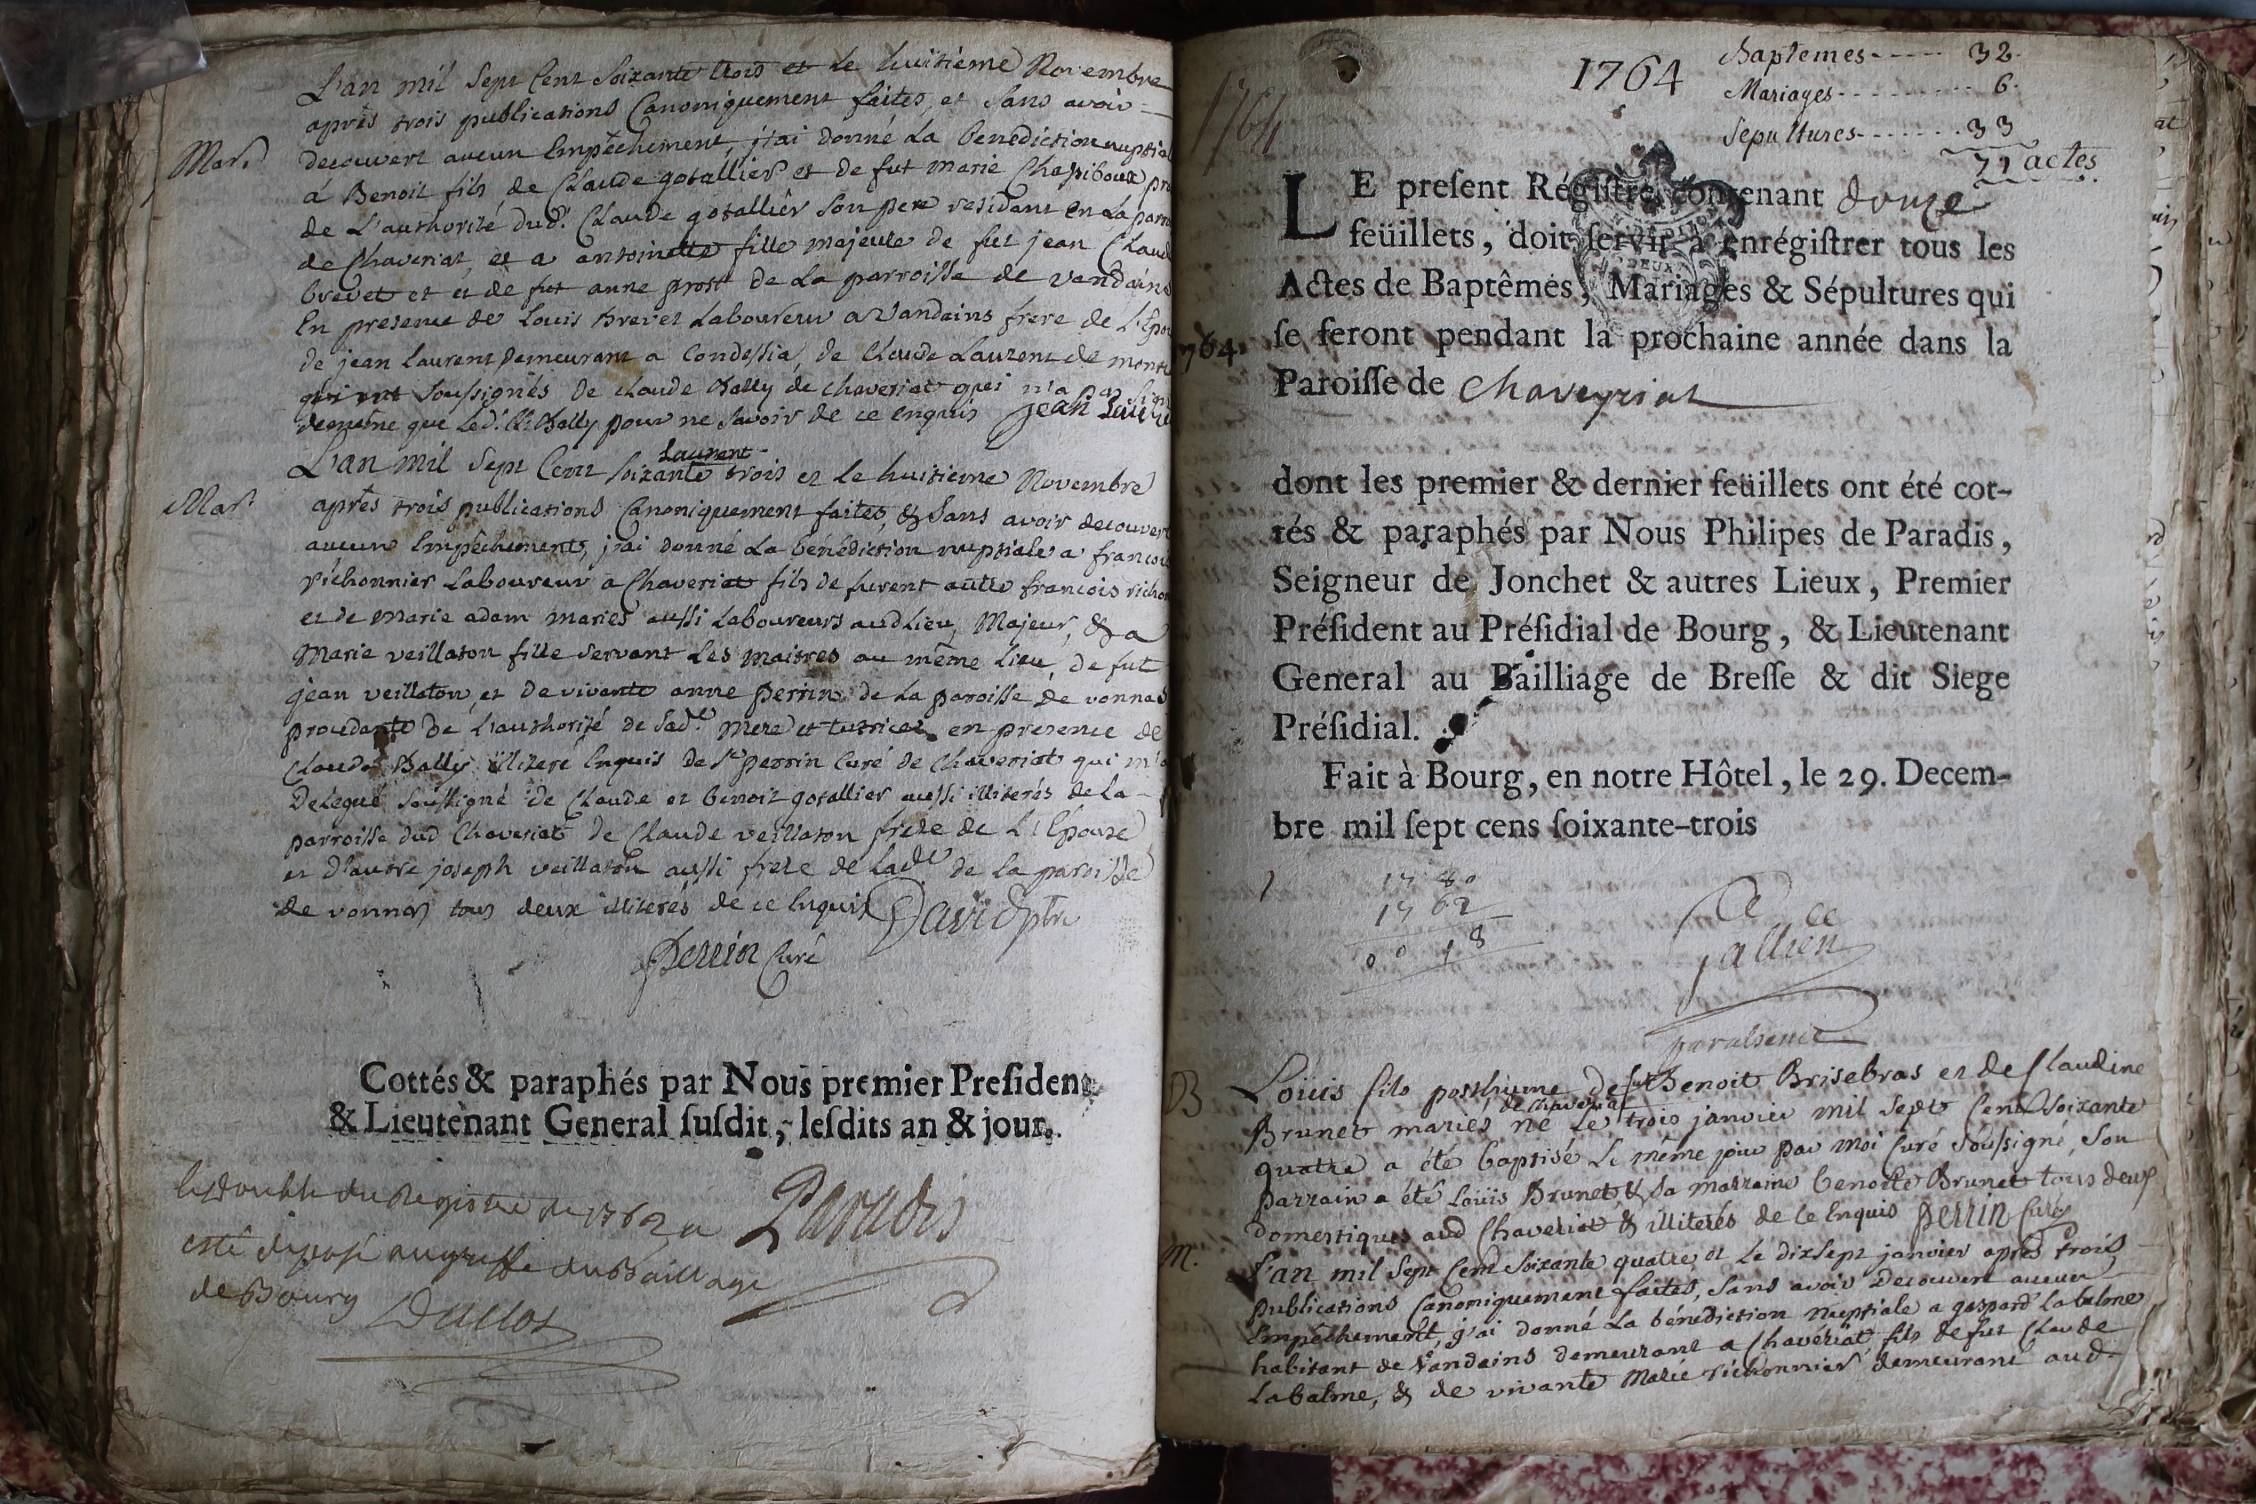 L'an mil sept Cent soixante trois et le huitième Novembre
après trois publications Canoniquement faites, et sans avoir
Mar.
decouvert aucun Empêchement, j'ai donné la benediction nuptial
á Benoit fils de Claude gotallier et de fut Marie
de L'authorité dud. Claude gotallier son pere residant en La paroi
de Chaveriat, et a antoinette fille majeure de fut jean Claud
brevet et et de fut anne prost de La parroisse de Vandains
En presence de Louis Brevet Laboureur a Vandains frere de L'Epou
de jean Laurent Demeurant a Condessia, de Claude Laurent de mont
qui ont soussignés de Claude Bally de Chaveriat qui n'a pas sign
demême que led. Cl. Bally pour ne savoir de ce enquis jean Laure
Laurent
L'an mil sept Cent soixante trois et le huitieme Novembre
Mar.
après trois publications Canoniquement faites, & sans avoir decouvert
aucun Empêchements, j'ai donné La bénédiction nuptiale a francois
richonnier Laboureur a Chaveriat fils de furent autre francois richon
et de Marie adam mariés aussi Laboureurs aud Lieu, Majeur, & a
Marie veillaton fille servant Les maitres au même Lieu, de fut
jean veillaton, et de vivante anne perrin de La paroisse de vonnas
procedante de L'authorité de sad. mere et tutrice, en presence de
Claude Bally illiteré Enquis de Sr perrin Curé de Chaveriat qui m'a
Delegué soussigné de Claude et benoit gotallier aussi illiterés de La
parroisse dud Chaveriat de Claude veillaton frere de L'Epouse
et d'autre joseph veillaton aussi frere de lade de la paroisse
de vonnas tous deux illiterés de ce Enquis David ptre
perrin Curé
Cottés & paraphés par Nous premier President
& Lieutenant General susdit, lesdits an & jour.
le double du Registre de 1762 a
esté deposé au greffe du Baillage
de Bourg Duclos
Paradis
1764
Baptemes ----- 32.
Mariages --------- 6.
Sepultures ------- 33
71 actes
1764
LE present Régistre contenant douze
feüillets, doit servir à enrégistrer tous les
Actes de Baptêmes, Mariages & Sépultures qui
se feront pendant la prochaine année dans la
764
Paroisse de Chaveyriat
dont les premier & dernier feüillets ont été cot-
tés & paraphés par Nous Philipes de Paradis,
Seigneur de Jonchet & autres Lieux, Premier
Président au Présidial de Bourg, & Lieutenant
General au Bailliage de Bresse & dit Siege
Présidial.
Fait à Bourg, en notre Hôtel, le 29. Decem-
bre mil sept cens soixante-trois
17 80
17 62
00 18
Gallien
par absence
B
Loüis fils posthume de fut Benoit Brisebras et de Claudine
de Chaveriat
Brunet mariés né le trois janvier mil sept Cent soixante
quatre a été baptisé le même jour par moi Curé soussigné, son
parrain a été Loüis Brunet, & sa marraine benoite Brunet tous deux
domestiques aud Chaveriat & illiterés de ce Enquis perrin Curé
M.
L'an mil sept Cent soixante quatre, et le dixsept janvier après trois
publications Canoniquement faites, sans avoir decouvert aucun
Empêchement, j'ai donné La bénédiction nuptiale a gaspard Labalme
habitant de Vandains demeurant a Chavériat fils de fut Claude
Labalme, & de vivante Marie richonnier demeurant aud.